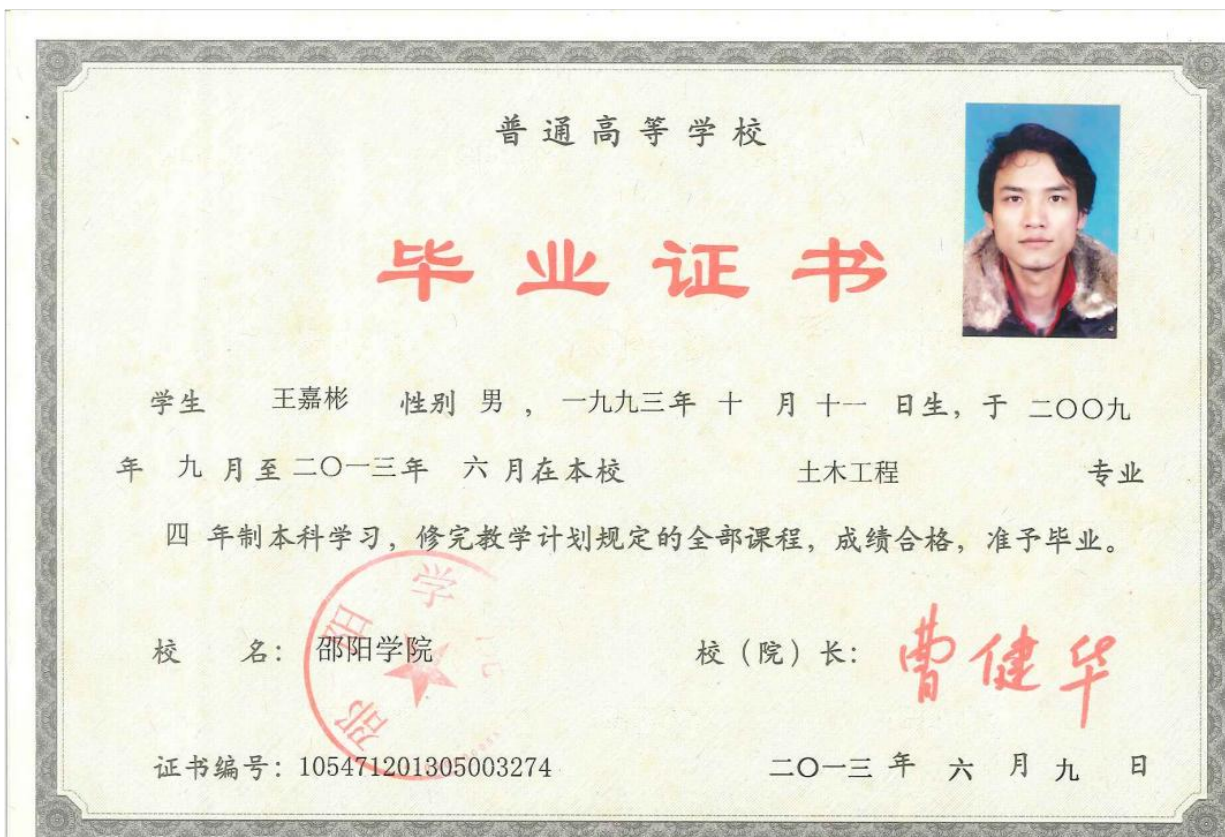 普通高等学校
毕业证书
学生 王嘉彬 性别 男 , 一九九三年 十 月 十一 日生, 于 二〇〇九
年 九 月至 二〇一三年 六 月在本校 土木工程 专业
四 年制本科学习, 修完教学计划规定的全部课程, 成绩合格, 准予毕业。
校 名: 邵阳学院 校(院)长: 曹健华
邵阳学
证书编号: 105471201305003274 二〇一三 年 六 月 九 日